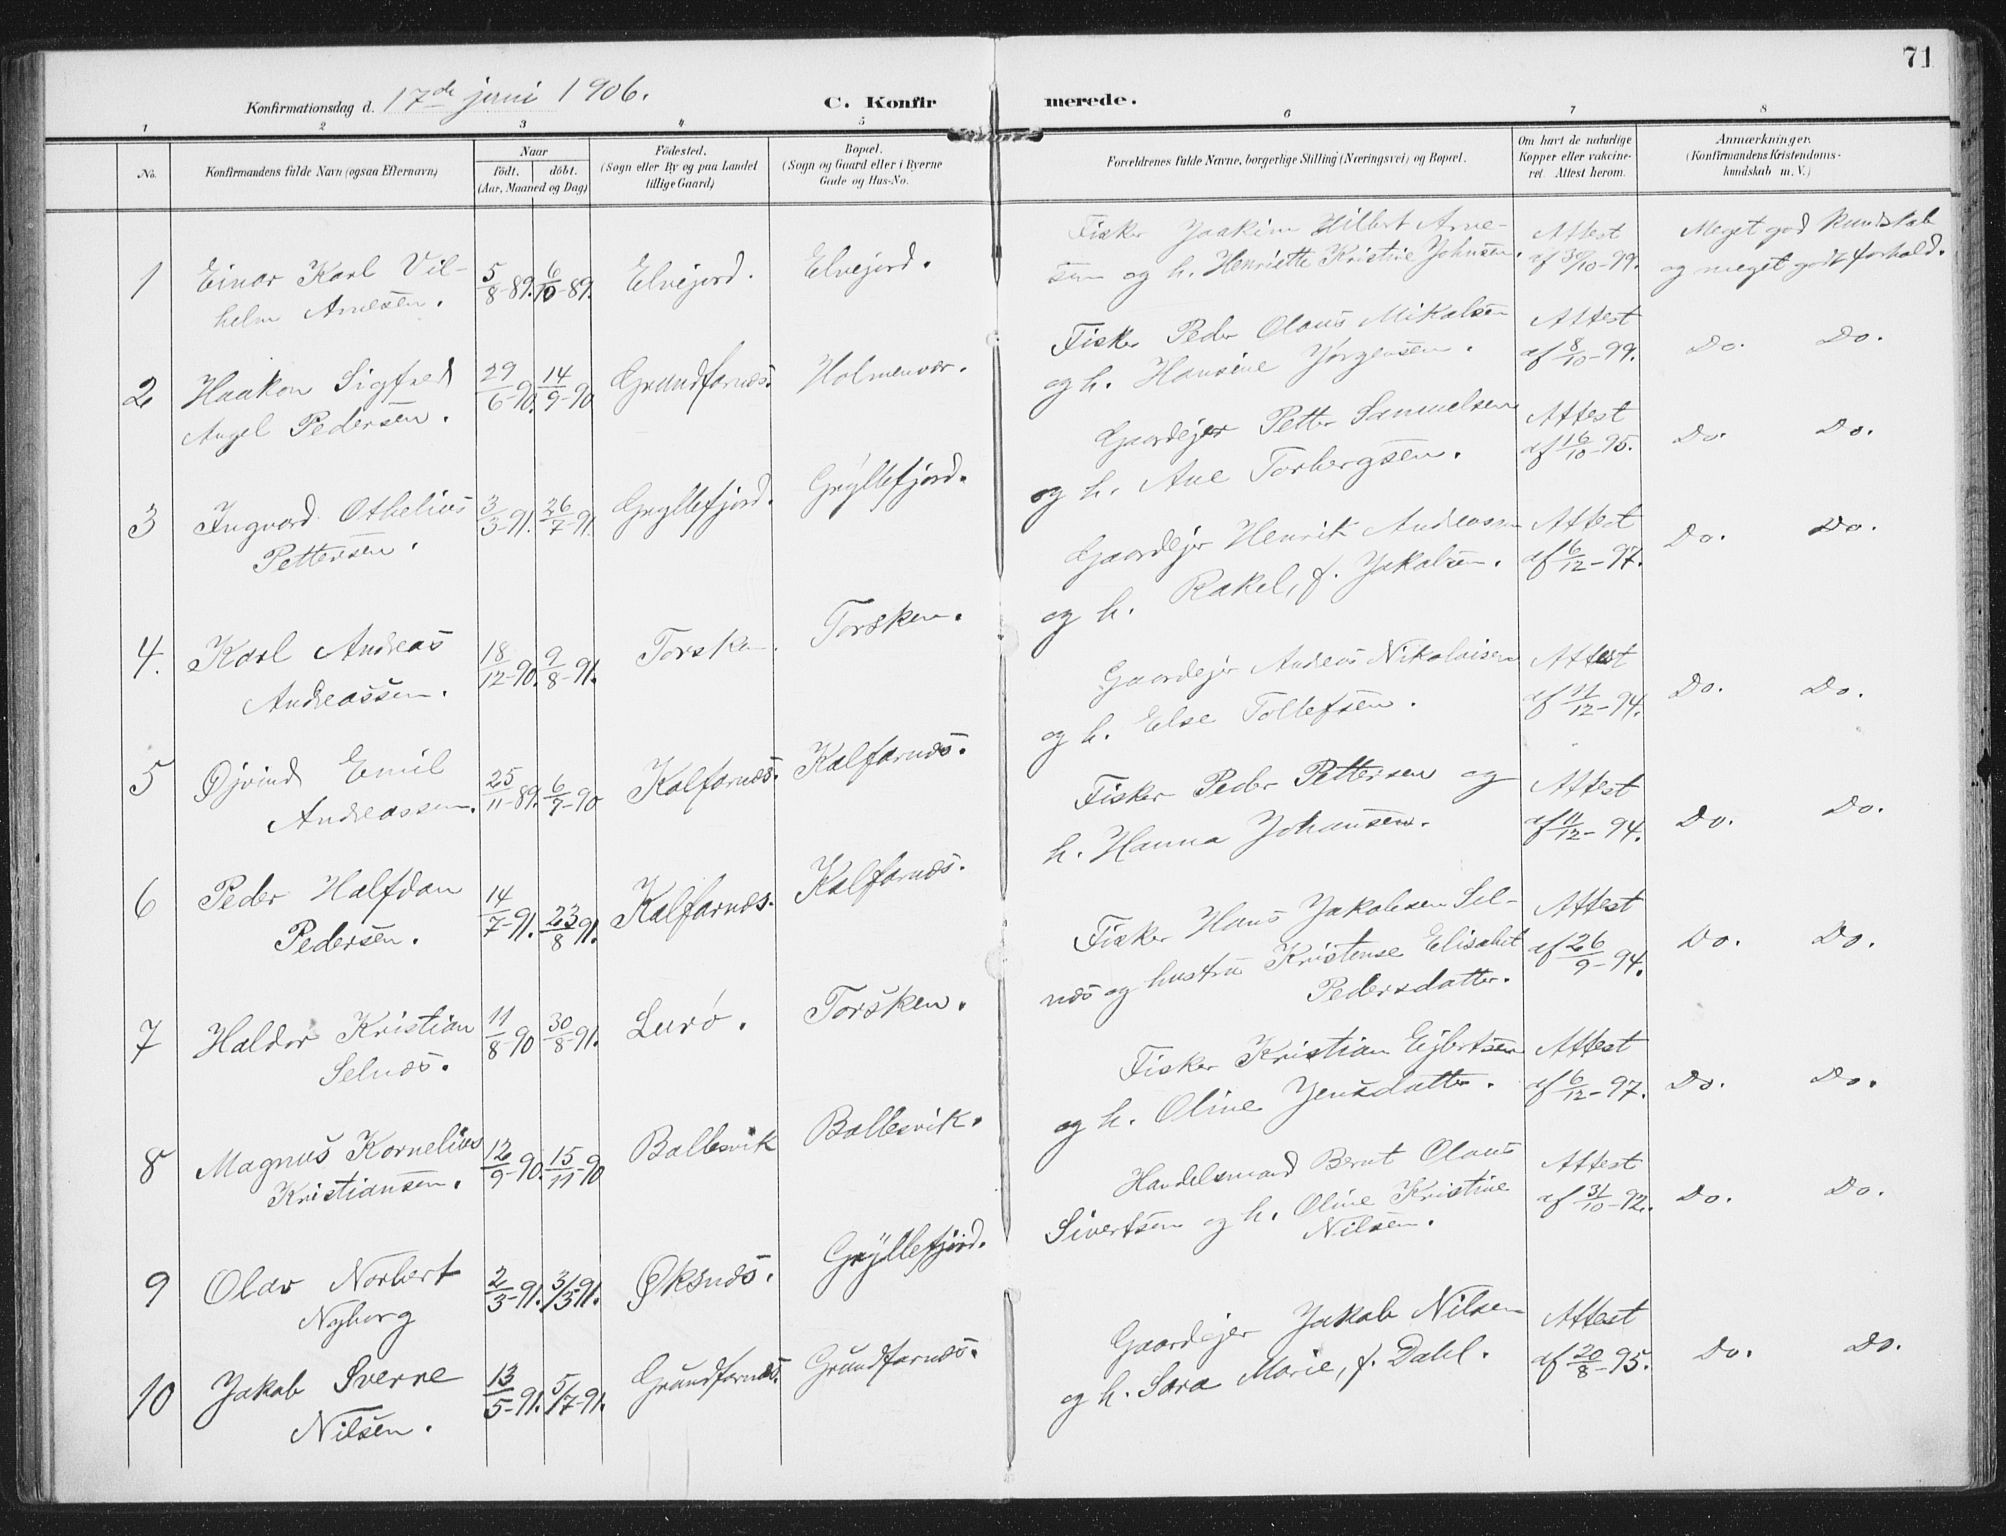 71
Konfirmationsdag d. 17de juni 1906.
C. Konfirmerede.
1 2 3 4 5 6 7 8
No.
Konfirmandens fulde Navn (ogsaa Efternavn)
Naar
födt. döbt.
(Aar, Maaned og Dag)
Födested.
(Sogn eller By og paa Landet
tillige Gaard)
Bopæl.
(Sogn og Gaard eller i Byerne
Gade og Hus-No.
Forældrenes fulde Navne, borgerlige Stilling (Næringsvei) og Bopæl.
Om havt de naturlige
Kopper eller vakcine-
ret. Attest herom.
Anmærkninger.
(Konfirmandens Kristendoms-
kundskab m. V.)
1 Einar Karl Vil-
helm Arnesen.
5/8-89. 6/10-89.
Elvejord.
Elvejord.
Fisker Joakim Hilbert Arne-
sen og h. Henriette Kristine Johnsen.
Attest
af 30/10-99.
Meget god kundskab
og meget godt forhold.
2 Haakon Sigfred
Angel Pedersen.
29/6-90. 14/9-90
Grundfarnes.
Holmenvær.
Fisker Peder Olaus Mikalsen
og h. Hansine Jørgensen.
Attest
af 8/10-99.
Do. Do.
3 Ingvard Othelius
Pettersen.
3/3-91. 26/7-91.
Gryllefjord.
Gryllefjord.
Gaardejer Petter Sammelsen
og h. Ane Torbergsen.
Attest
af 16/10-95.
Do. Do.
4. Karl Andreas
Andreassen.
18/12-90. 9/8-91.
Torsken.
Torsken.
Gaardejer Henrik Andreassen
og h. Rakel, f. Jakobsen.
Attest
af 6/12-97.
Do. Do.
5 Øjvind Emil
Andreassen.
25/11-89. 6/7-90
Kalfarnes.
Kalfarnes.
Gaardejer Andreas Nikolaisen
og h. Else Tollefsen.
Attest
af 11/12-94.
Do. Do.
6 Peder Halfdan
Pedersen.
14/7-91. 23/8 91.
Kalfarnes.
Kalfarnes.
Fisker Peder Pettersen og
h. Hanna Johansen.
Attest
af 11/12-94.
Do. Do.
7 Haldor Kristian
Selnæs.
11/8-90 30/8-91.
Lurø.
Torsken.
Fisker Hans Jakobsen Sel-
næs og hustru Kristense Elisabet
Pedersdatter.
Attest
af 26/9-94.
Do. Do.
8 Magnus Kornelius
Kristiansen.
12/9-90. 15/11-90
Ballesvik
Ballesvik.
Fisker Kristian Ejbertsen
og h. Oline Jensdatter.
Attest
af 6/12-97.
Do. Do.
9 Olav Norbert
Nyborg
2/3-91. 3/13-91.
Øksnes.
Gryllefjord.
Handelsmand Bernt Olaus
Sivertsen og h. Oline Kristine
Nilsen.
Attest
af 31/10-92.
Do. Do.
10 Jakob Sverre
Nilsen.
13/5-91. 5/7-91.
Grundfarnes.
Grundfarnes.
Gaardejer Jakob Nilsen
og h. Sara Marie, f. Dahl.
Attest
af 20/8-95.
Do. Do.